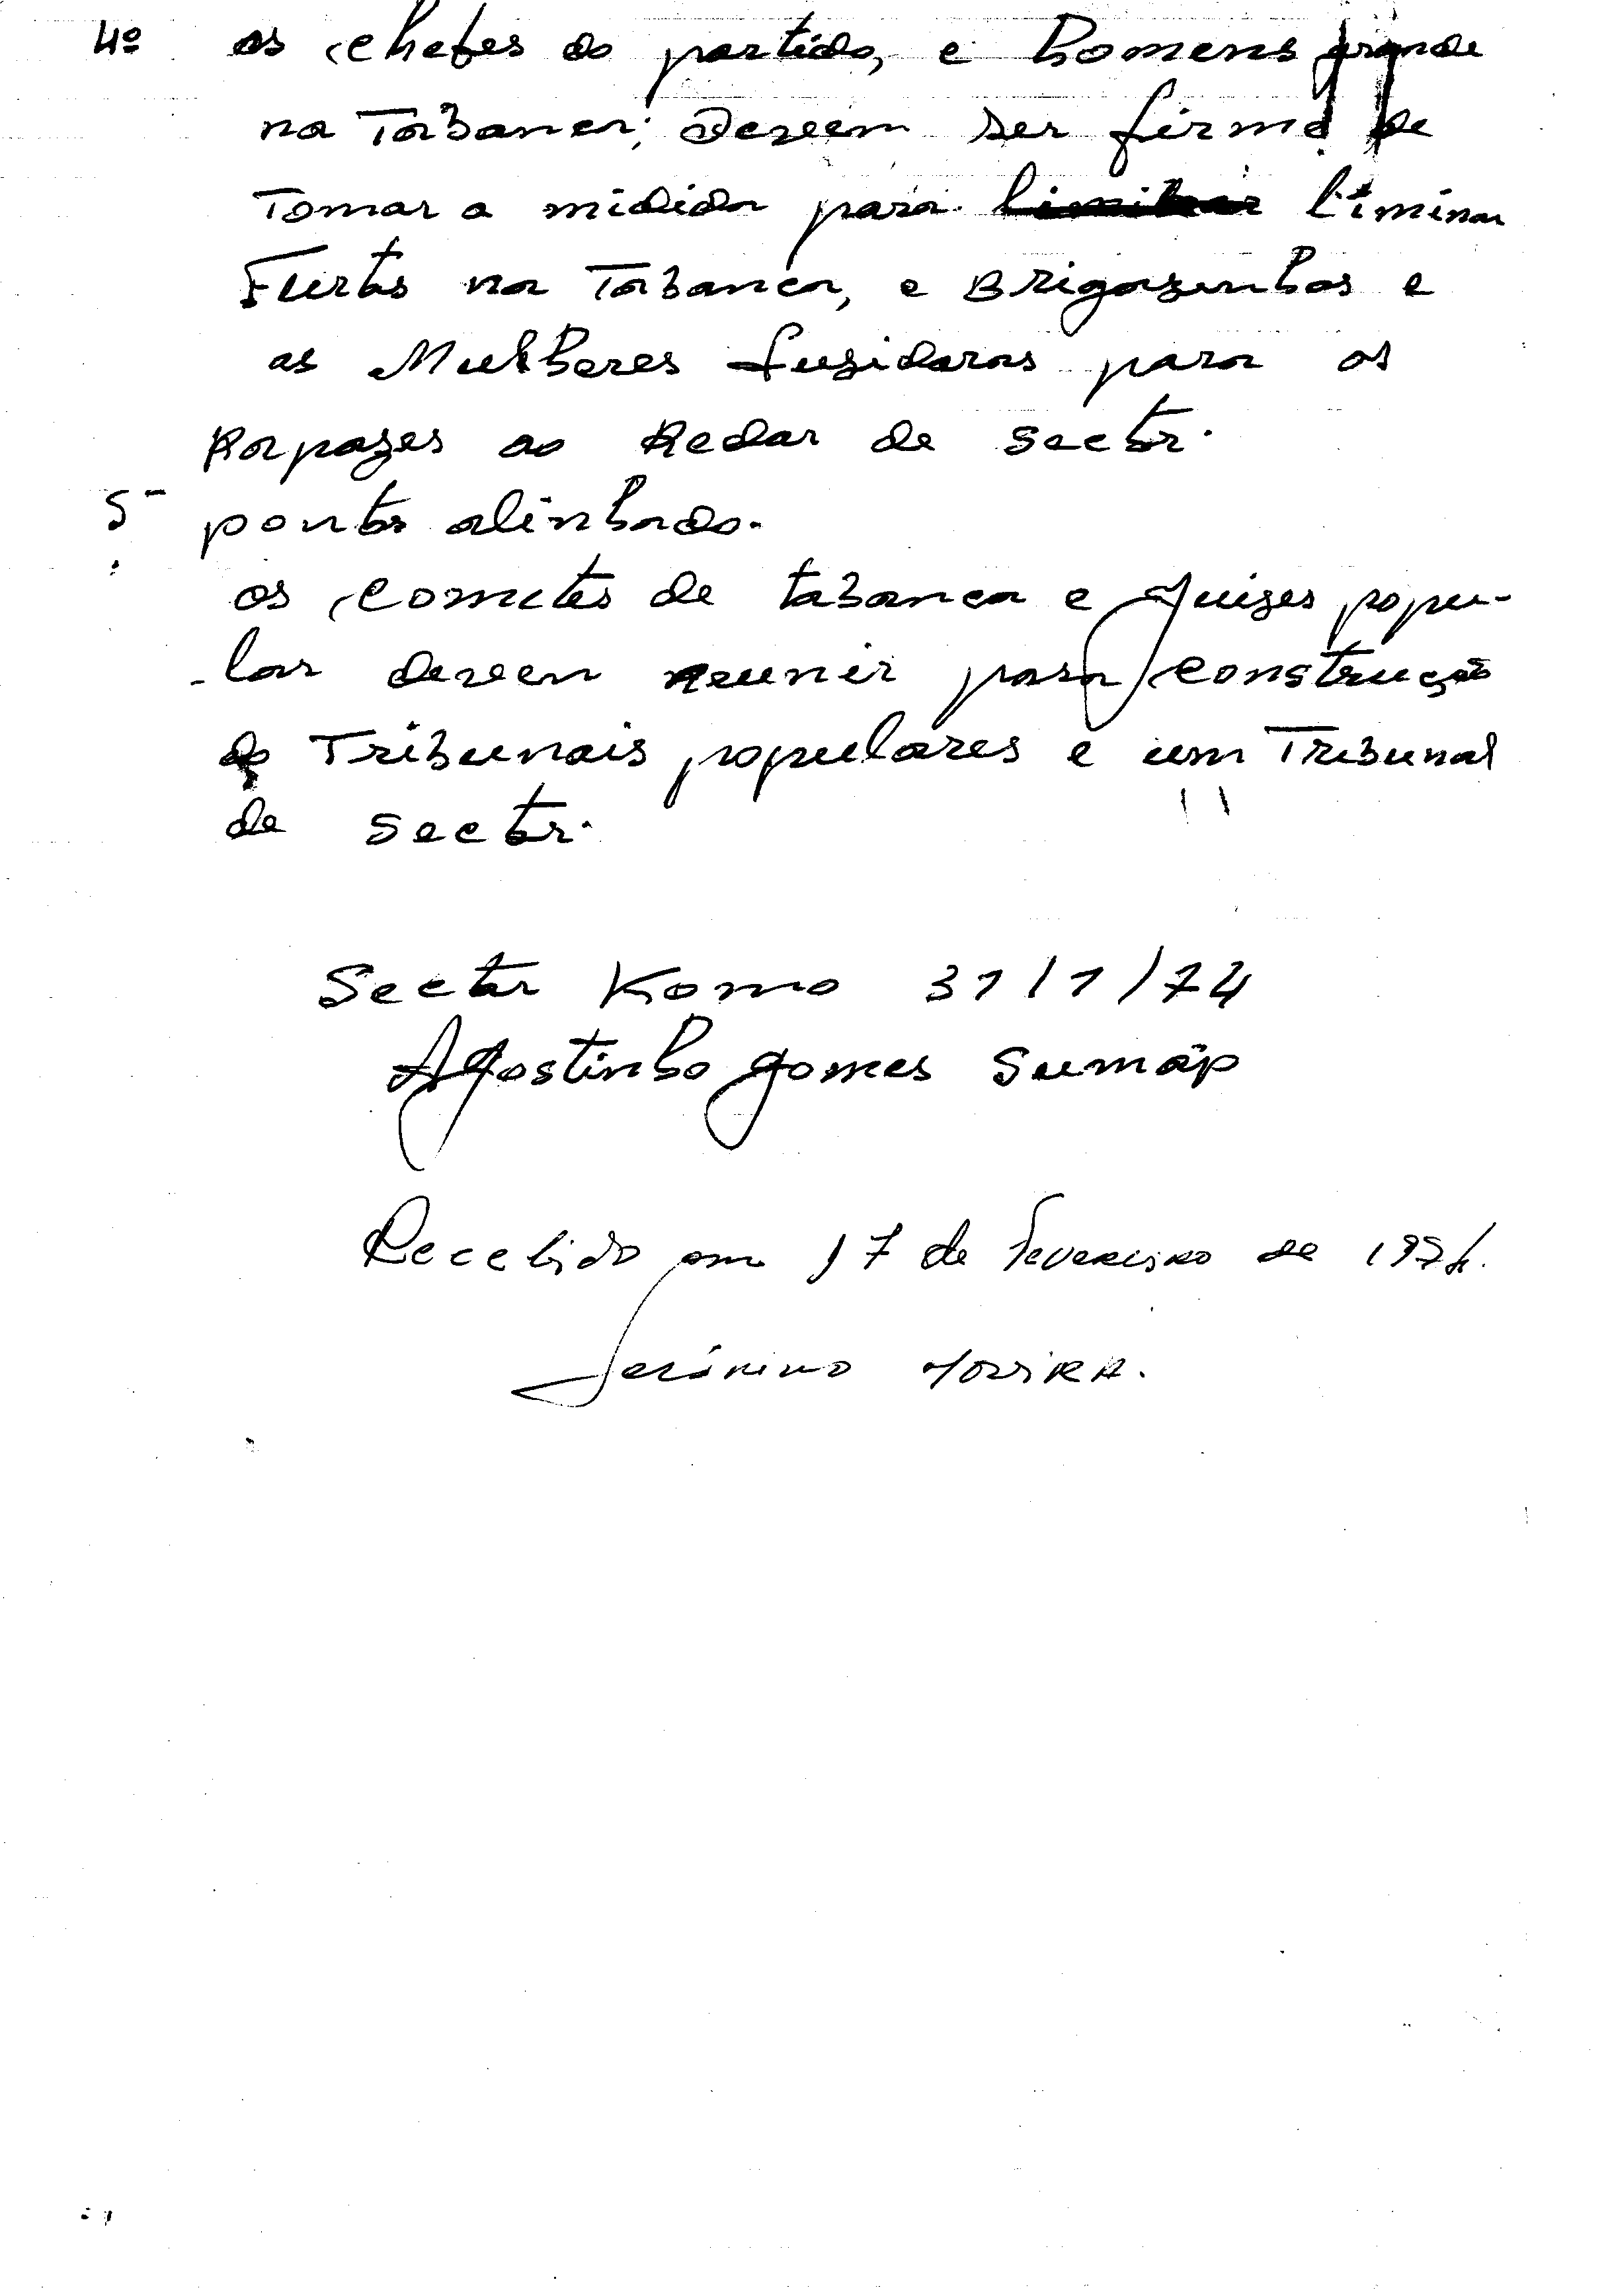 4º os chefes do partido, e homens grande
na Tabanca; devem ser firme de
Tomar a midida para liminar
Furtos na Tabanca, e Brigazinhas e
as Mulheres fugidaras para os
Rapazes ao Redar de sector.
5- ponto alinhado.
os comites de tabanca e juizes popu-
-lar devem reunir para construção
de Tribunais populares e um Tribunal
de sector.
Sector Komo 31/1/74
Agostinho gomes Sumáp
Recebido em 17 de Fevereiro de 1974.
Jerónimo